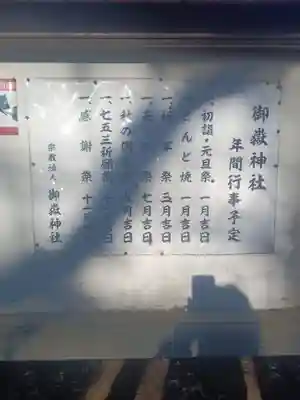 御嶽神社
年間行事予定
一、初詣・元旦祭。一月吉日
どんど焼 一月吉日
祭 三月吉日
祭 七月吉日
一、秋の 月吉日
一、七五三祈願 日
一、感謝祭 十一
宗教法人 御嶽神社